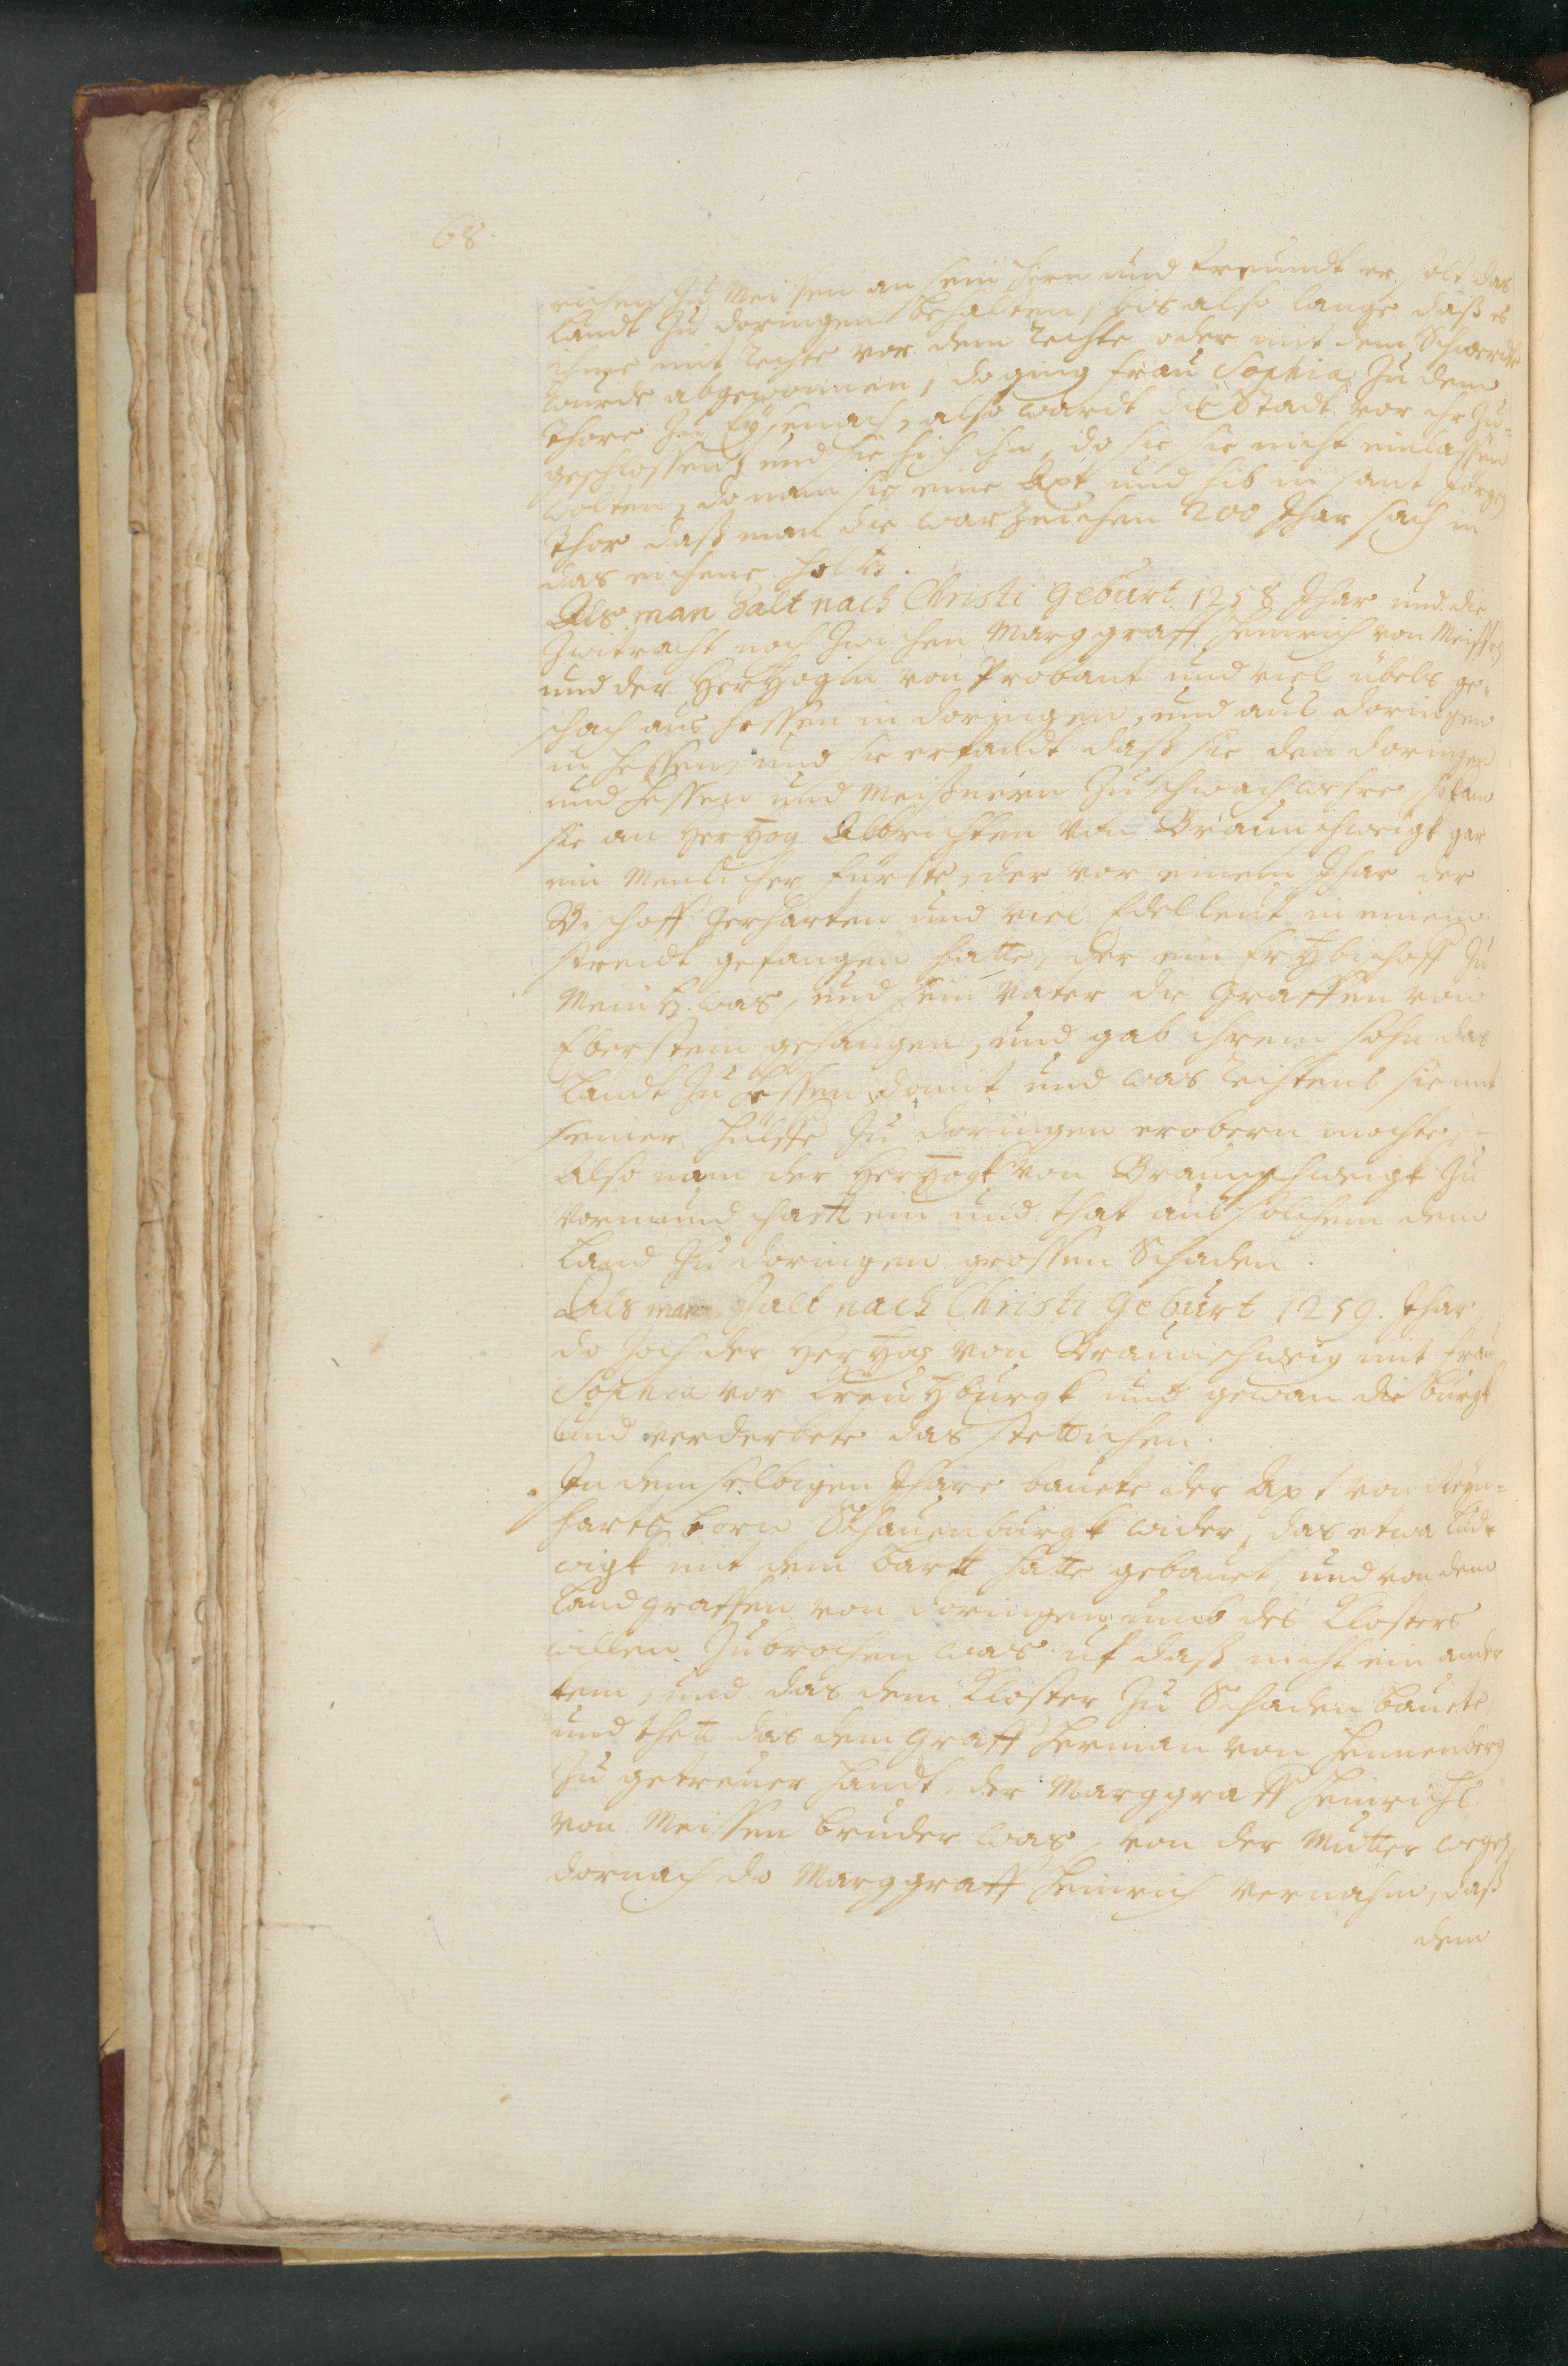 68.
richen zu Meissen an sein Hern und freundt er solt das
Landt zu doringen behalten, bis also lange daß es
ihme mit rechte vor dem rechte oder mit dem Schwerdte
wurde abgewonnen, do ging frau Sophia zu dem
thore zu Eysenach, also wardt die Stadt vor ihr zu-
geschlossen, und sie hisch ihn, do sie sie nicht einlassen
wolten, do nam sie eine Axt und hib in sant Jörgen
thor daß man die warzeichen 200 Jhar sach in
das eichene holtz.
Als man Zalt nach Christi Geburt 1258 Jhar und die
Zwitracht noch zwischen Marggraff Heinrich von Meissen
und der Hertzogin von Probant und viel übels ge-
schach aus Hessen in doringen, und aus doringen
in Hessen, und sie erkandt daß sie den doringen
und Hessen und Meißnern zu schwach wehre, so kam
sie an Hertzog Albrichten von Braunschweigk gar
ein menlicher fürste, der vor einem Jhar der
Bischoff Gerharten und viel Edelleut in einem
streidt gefangen hatte, der ein Ertzbischoff zu
Meintz was, und sein vater die Graffen von
Eberstein gefangen, und gab ihrem sohn das
Landt zu Hessen domit und was reichtens sie mit
seiner hülffe zu doringen erobern mochte, -
Also nam der Hertzogk von Braunschweigk zu
vormundschafft ein und that aus solchem dem
Land zu doringen grossen Schaden.
Als man Zalt nach Christi Geburt 1259. Jhar,
do zoch der Hertzog von Braunschweig mit frau
Sophia vor Kreutzburgk und gewan die burgk
und verderbete das stettichen.
In dem selbigen Jhare bauete der Apt von Reyn-
harts born Schauenburgk wider, das etwa Lud-
wigk mit dem bartt hatte gebauet, und von dem
Landgraffen von doringen umb des Klosters
willen zubrochen was uf daß nicht ein ander
kem, und das dem Kloster zu Schaden bauete,
und thett das dem Graff Herman von Hennenberg
zu getreuer handt, der Marggraff Heinrichs
von Meissen bruder was, von der Mutter wegen,
dornach do Marggraff Heinrich vernahm, daß
dem